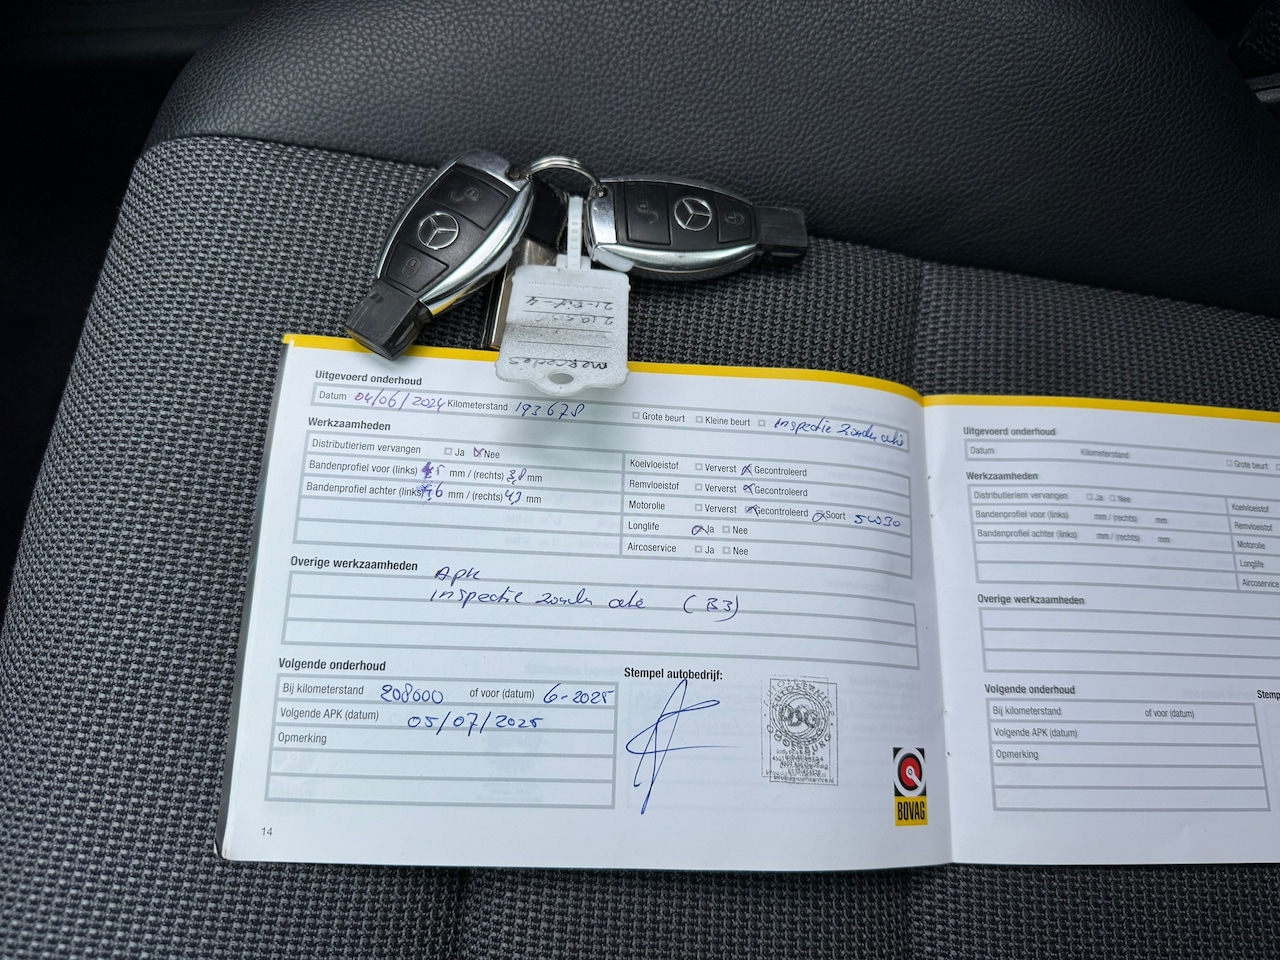 mercedes
Uitgevoerd onderhoud
Datum 04/06/2024 Kilometerstand 193678 Grote beurt Kleine beurt Inspectie zonder olie
Werkzaamheden
Distributieriem vervangen Ja Nee
Bandenprofiel voor (links) mm / (rechts) 3,8 mm
Bandenprofiel achter (links) 6 mm / (rechts) 4,9 mm
Koelvloeistof Ververst Gecontroleerd
Remvloeistof Ververst Gecontroleerd
Motorolie Ververst Gecontroleerd Soort 5W30
Longlife Ja Nee
Aircoservice Ja Nee
Overige werkzaamheden
Apk
inspectie zonder olie (B3)
Volgende onderhoud
Bij kilometerstand 208000 of voor (datum) 6-2025
Volgende APK (datum) 05/07/2025
Opmerking
Stempel autobedrijf:
BOVAG
14
Uitgevoerd onderhoud
Datum Kilometerstand Grote beurt
Werkzaamheden
Distributieriem vervangen Ja Nee
Bandenprofiel voor (links) mm / (rechts) mm
Bandenprofiel achter (links) mm / (rechts) mm
Koelvloeistof
Remvloeistof
Motorolie
Longlife
Aircoservice
Overige werkzaamheden
Volgende onderhoud
Bij kilometerstand of voor (datum)
Volgende APK (datum)
Opmerking
Stemp